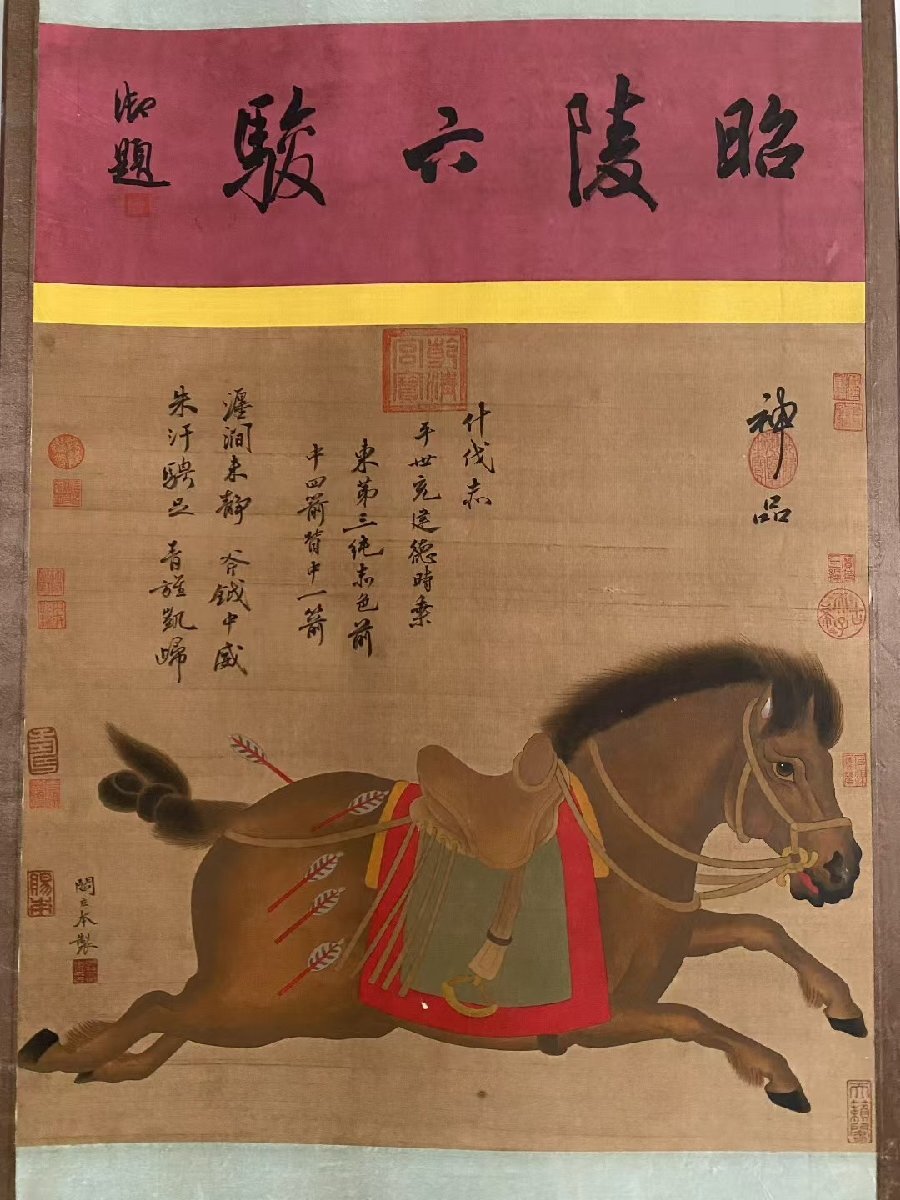 昭陵六駿
御題
神品
乾清宮寶
什伐赤
平世充建德時乘
東第三純赤色前
中四箭背中一箭
瀍澗未靜 斧鉞申威
朱汗騁足 青旌凱歸
閻立本製